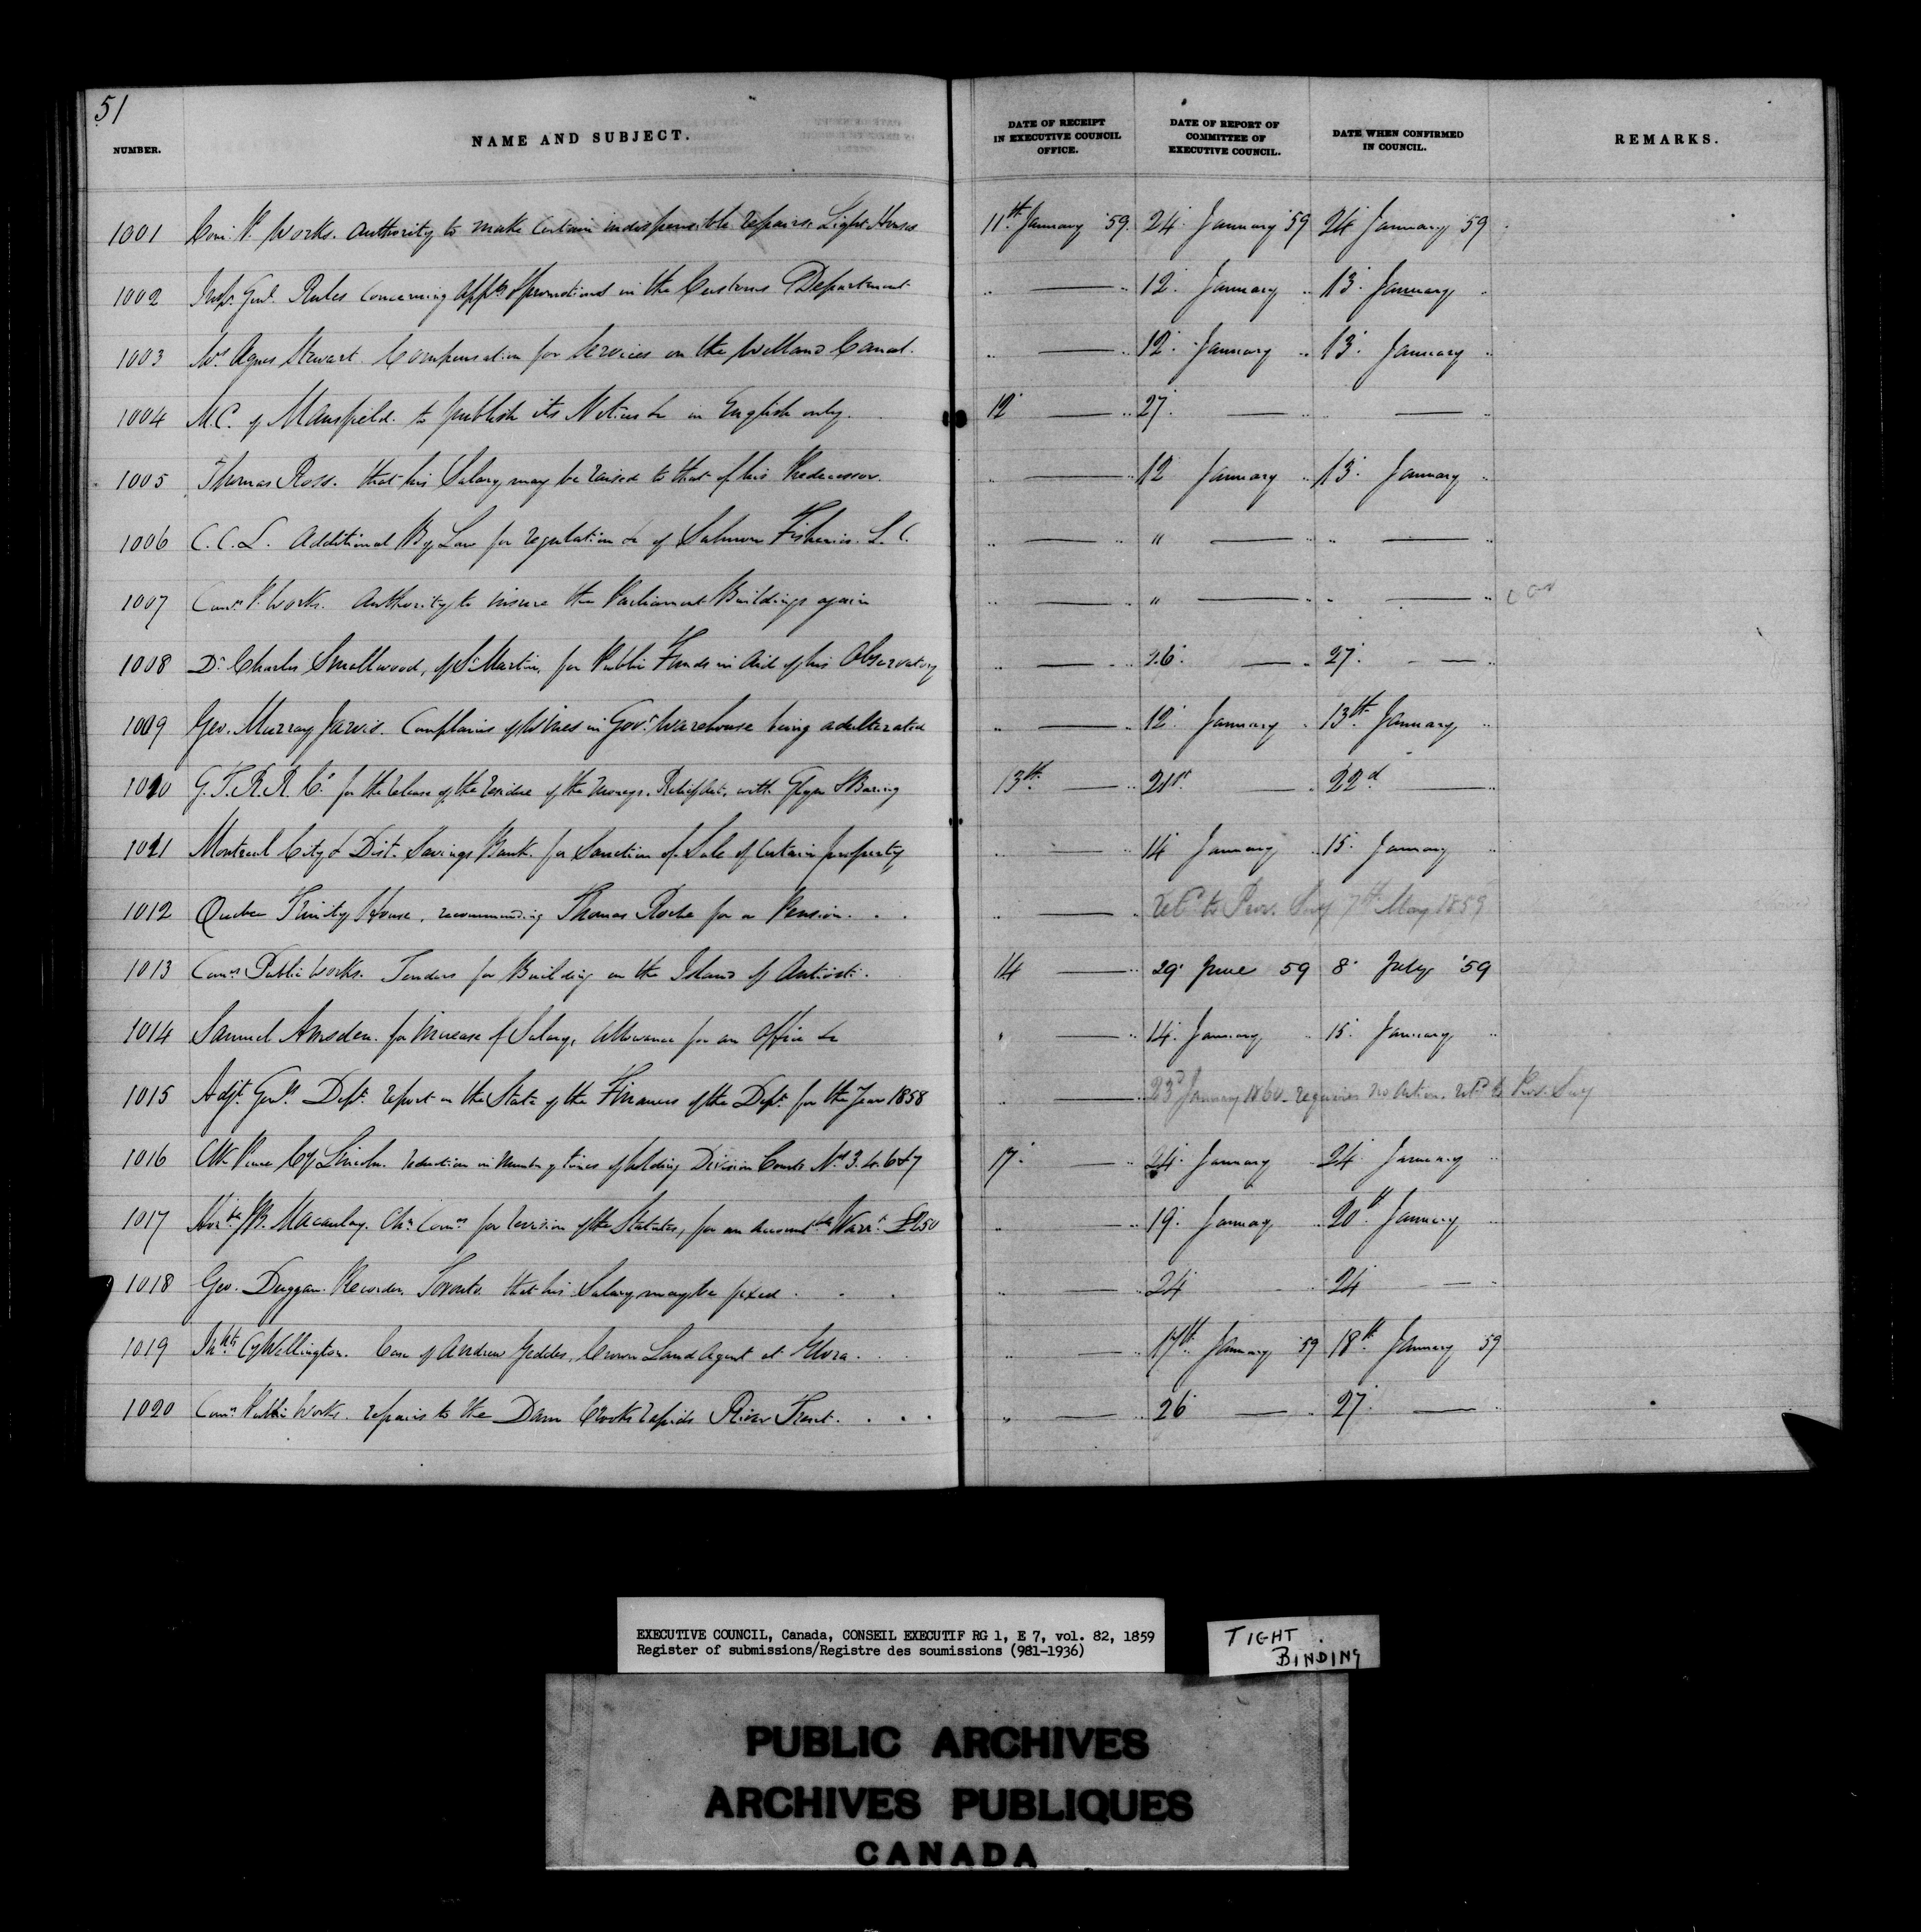 51
NUMBER. NAME AND SUBJECT. DATE OF RECEIPT IN EXECUTIVE COUNCIL OFFICE. DATE OF REPORT OF COMMITTEE OF EXECUTIVE COUNCIL. DATE WHEN CONFIRMED IN COUNCIL. REMARKS.
1001 Com. P. Works. Authority to make certain indispensible repairs Light Houses 11th January '59. 24 January '59 24 January 59
1002 Insp. Genl. Rules concerning appts & promotions in the Customs Department .. — .. 12. January .. 13. January ..
1003 Mrs Agnes Stewart. Compensation for Services on the Welland Canal. .. — .. 12. January .. 13. January ..
1004 M.C. of Mansfield. to publish its Notices &c in English only. 12 — .. 27. — .. — ..
1005 Thomas Ross. that his Salary may be raised to that of his Predecessor. .. — .. 12 January .. 13. January ..
1006 C.C.L. Additional By Law for regulation &c of Salmon Fisheries. L.C. .. — .. " — .. — ..
1007 Comrs P. Works. Authority to insure the Parliament Buildings again .. — .. " — .. — ..
1008 Dr Charles Smallwood, of St Martin, for Public Funds in Aid of his Observatory .. — .. 26. — .. 27. — ..
1009 Geo. Murray Jarvis. Complains of Wines in Govt Warehouse being adulterated .. — .. 12. January .. 13th January ..
1010 G.T.R.R. Co. for the release of the residue of the moneys. Relief Act, with Glyn & Baring 13th — .. 21st — .. 22d — ..
1011 Montreal City & Dist. Savings Bank. for Sanction of Sale of Certain property .. — .. 14 January .. 15. January ..
1012 Quebec Trinity House, recommending Thomas Roche for a Pension. . . .. — .. to Prov. Secy 7th May 1859
1013 Comrs Public Works. Tenders for Building on the Island of Anticosti. 14 — .. 29. June 59 8. July '59
1014 Samuel Amsden. for Increase of Salary, allowance for an Office &c — .. 14. January .. 15. January ..
1015 Adjt. Genls. Dept. report on the State of the Finances of the Dept. for the Year 1858 .. — .. 23d January 1860 requires no action. to Prov. Secy
1016 Clk Peace Cy Lincoln. reduction in Number of times of holding Division Courts Nos 3. 4. 6 & 7 17. — .. 24. January .. 24. January ..
1017 Honble J.B. Macaulay. Chn Comrs for revision of the Statutes, for an Accountble Warrt £250 .. — .. 19. January .. 20th January ..
1018 Geo. Duggan. Recorder, Toronto. that his Salary may be fixed . . . .. — .. 24 .. 24 — ..
1019 Inhabts Cy Wellington. Case of Andrew Geddes, Crown Land Agent at Elora. . . .. — .. 17th January '59 18th January 59
1020 Comrs Public Works. repairs to the Dam Crooks rapids River Trent. . . . .. — .. 26 — .. 27. — ..
EXECUTIVE COUNCIL, Canada, CONSEIL EXECUTIF RG 1, E 7, vol. 82, 1859
Register of submissions/Registre des soumissions (981-1936)
TIGHT BINDING
PUBLIC ARCHIVES
ARCHIVES PUBLIQUES
CANADA